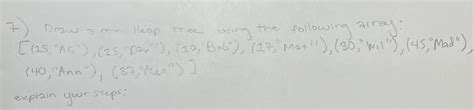 7) Draw a min Heap Tree using the following array:
[(15,"Al"), (25, "Dav"), (10, "Bob"), (27,"Mat"), (30,"Wil"), (45,"Mad"),
(40,"Ann"), (37,"Alex")]
explain your steps: